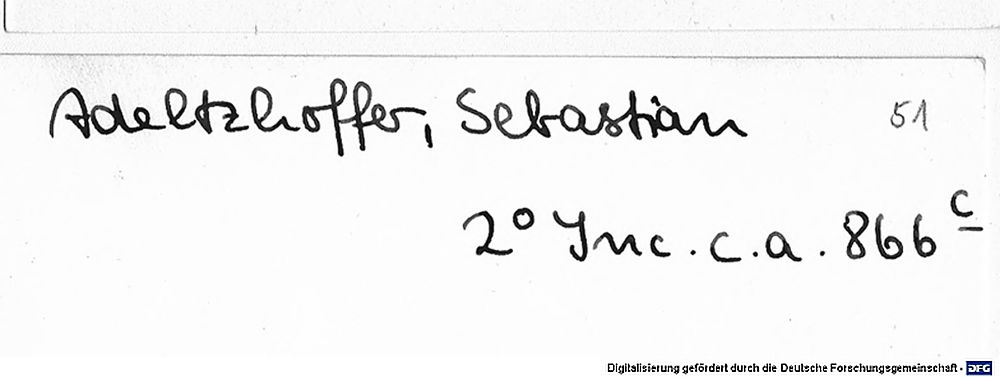 Adeltzhoffer, Sebastian 51
2° Inc. c. a. 866 c
Digitalisierung gefördert durch die Deutsche Forschungsgemeinschaft - DFG